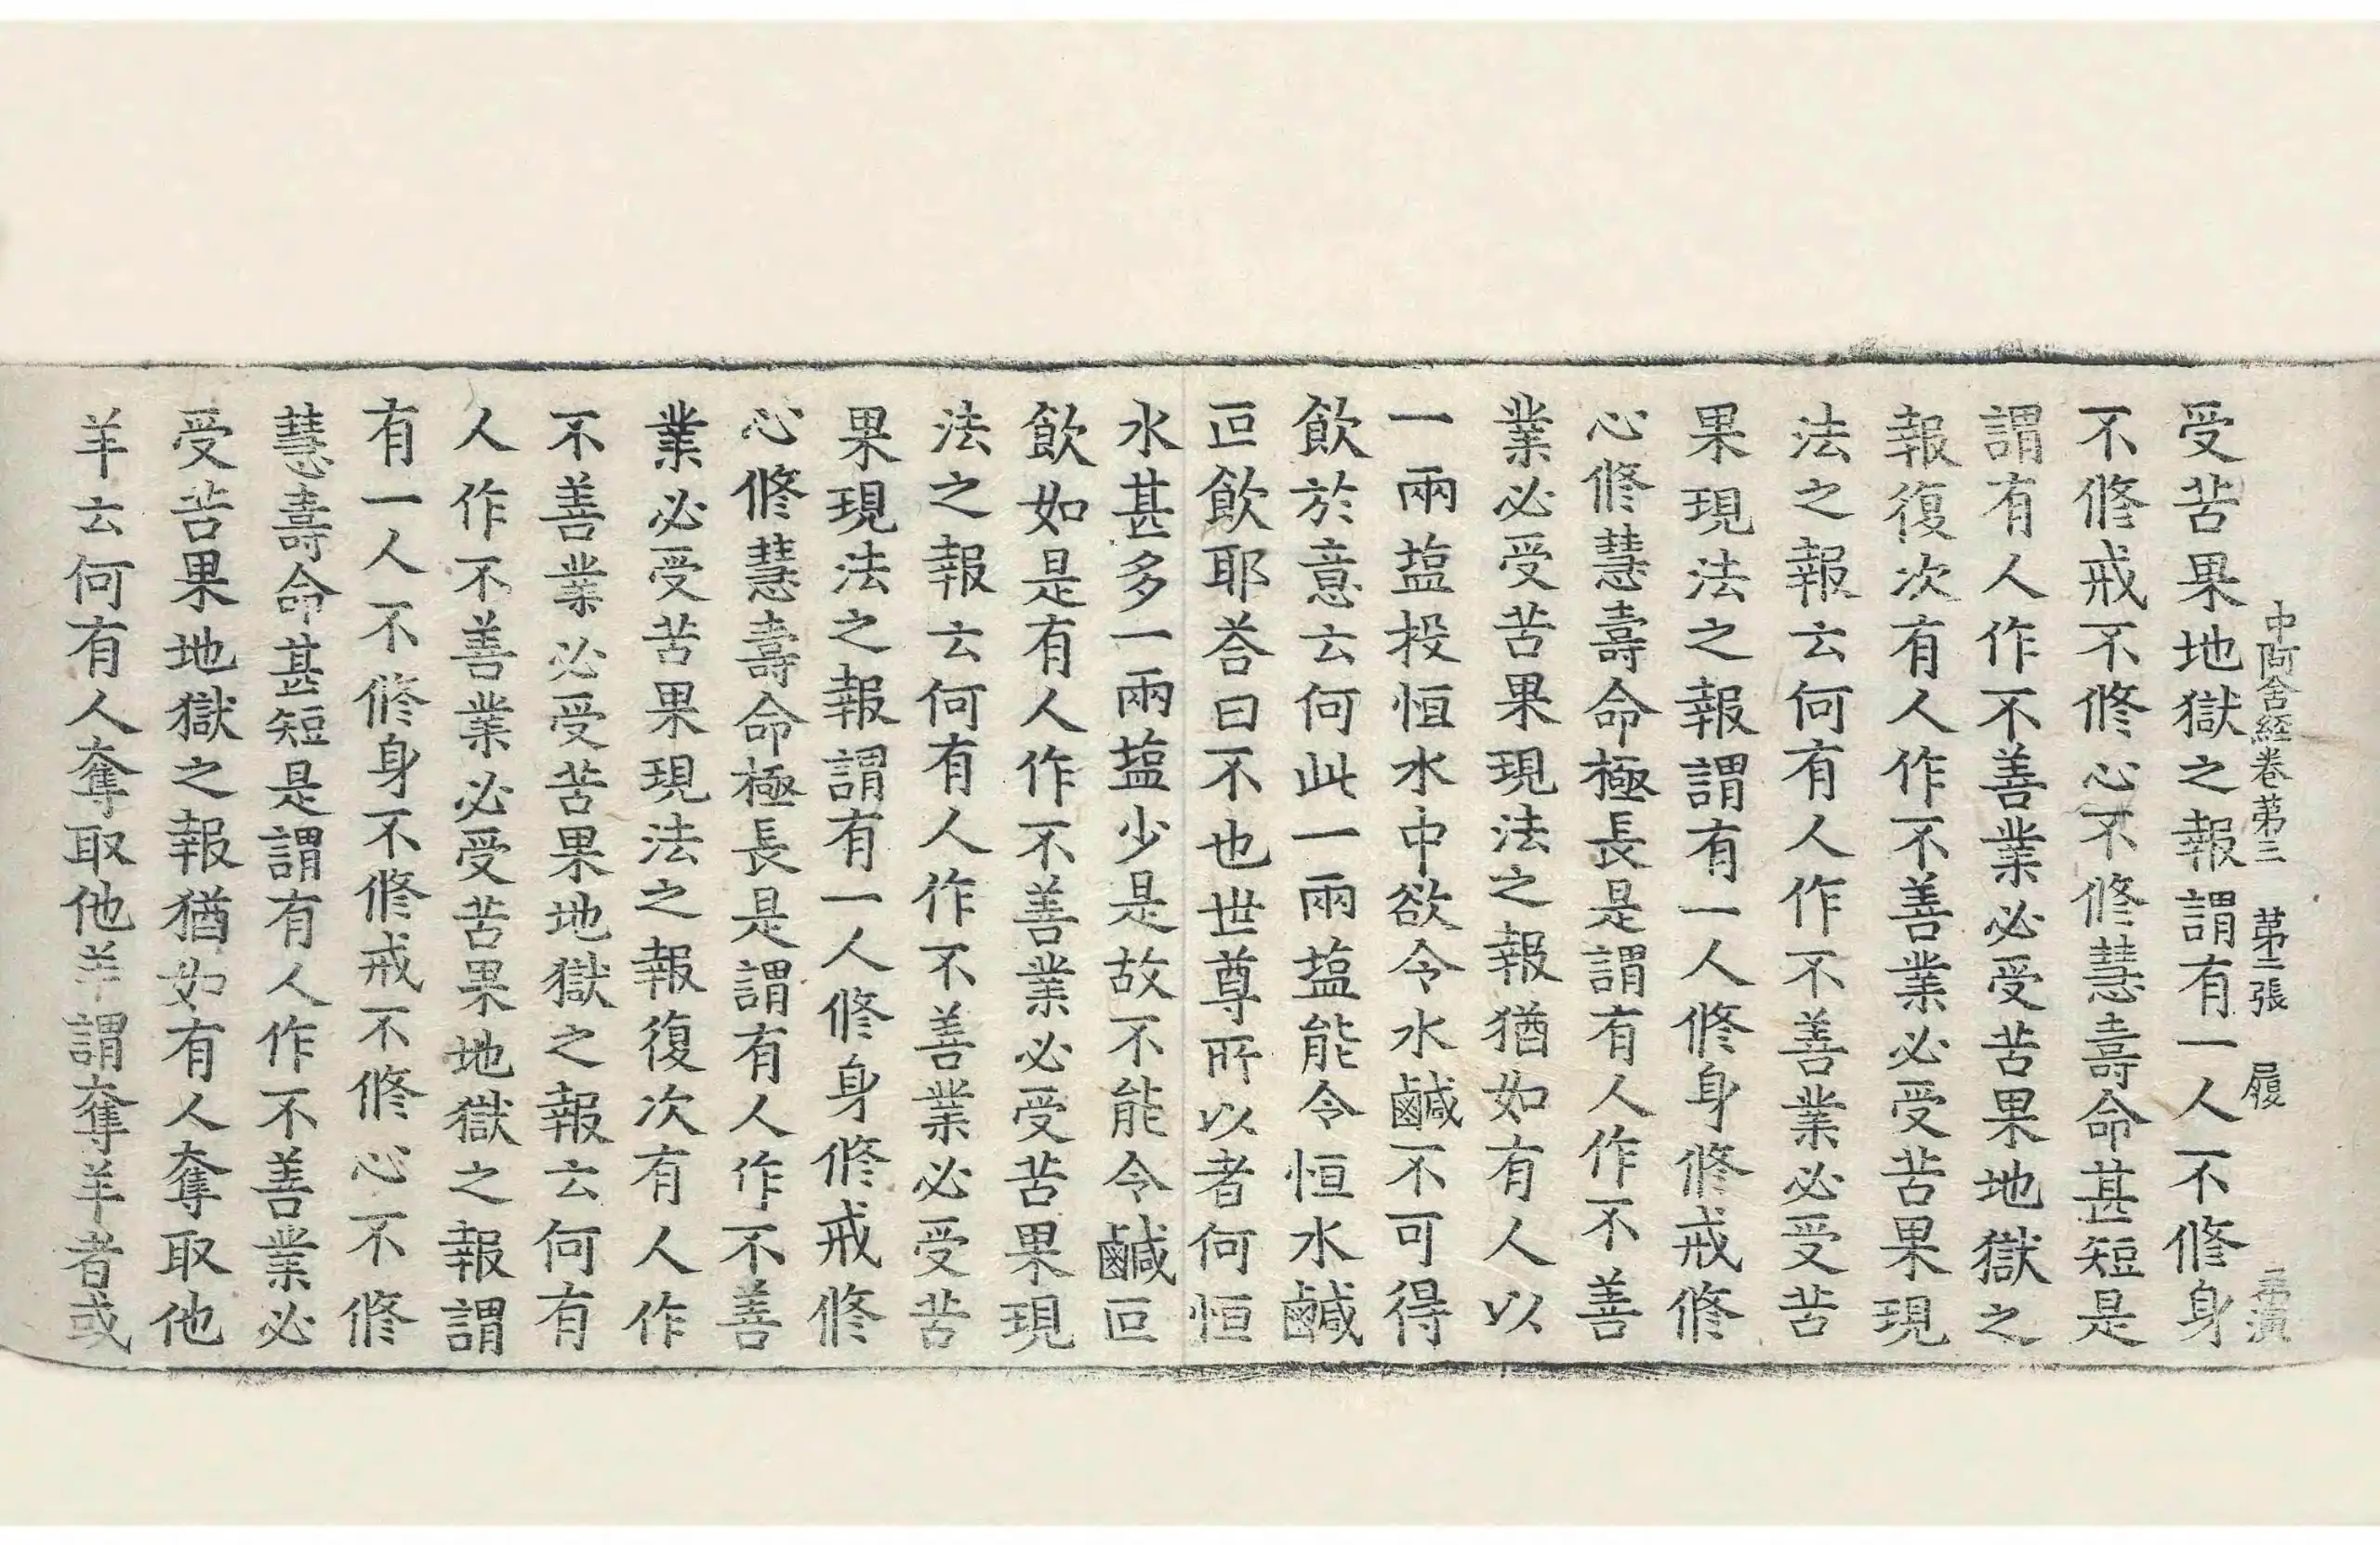 中阿含經卷第三　第二張　履
受苦果地獄之報謂有一人不修身
不修戒不修心不修慧壽命甚短是
謂有人作不善業必受苦果地獄之
報復次有人作不善業必受苦果現
法之報云何有人作不善業必受苦
果現法之報謂有一人修身修戒修
心修慧壽命極長是謂有人作不善
業必受苦果現法之報猶如有人以
一兩塩投恒水中欲令水鹹不可得
飲於意云何此一兩塩能令恒水鹹
叵飲耶荅曰不也世尊所以者何恒
水甚多一兩塩少是故不能令鹹叵
飲如是有人作不善業必受苦果現
法之報云何有人作不善業必受苦
果現法之報謂有一人修身修戒修
心修慧壽命極長是謂有人作不善
業必受苦果現法之報復次有人作
不善業必受苦果地獄之報云何有
人作不善業必受苦果地獄之報謂
有一人不修身不修戒不修心不修
慧壽命甚短是謂有人作不善業必
受苦果地獄之報猶如有人奪取他
羊云何有人奪取他羊謂奪羊者或